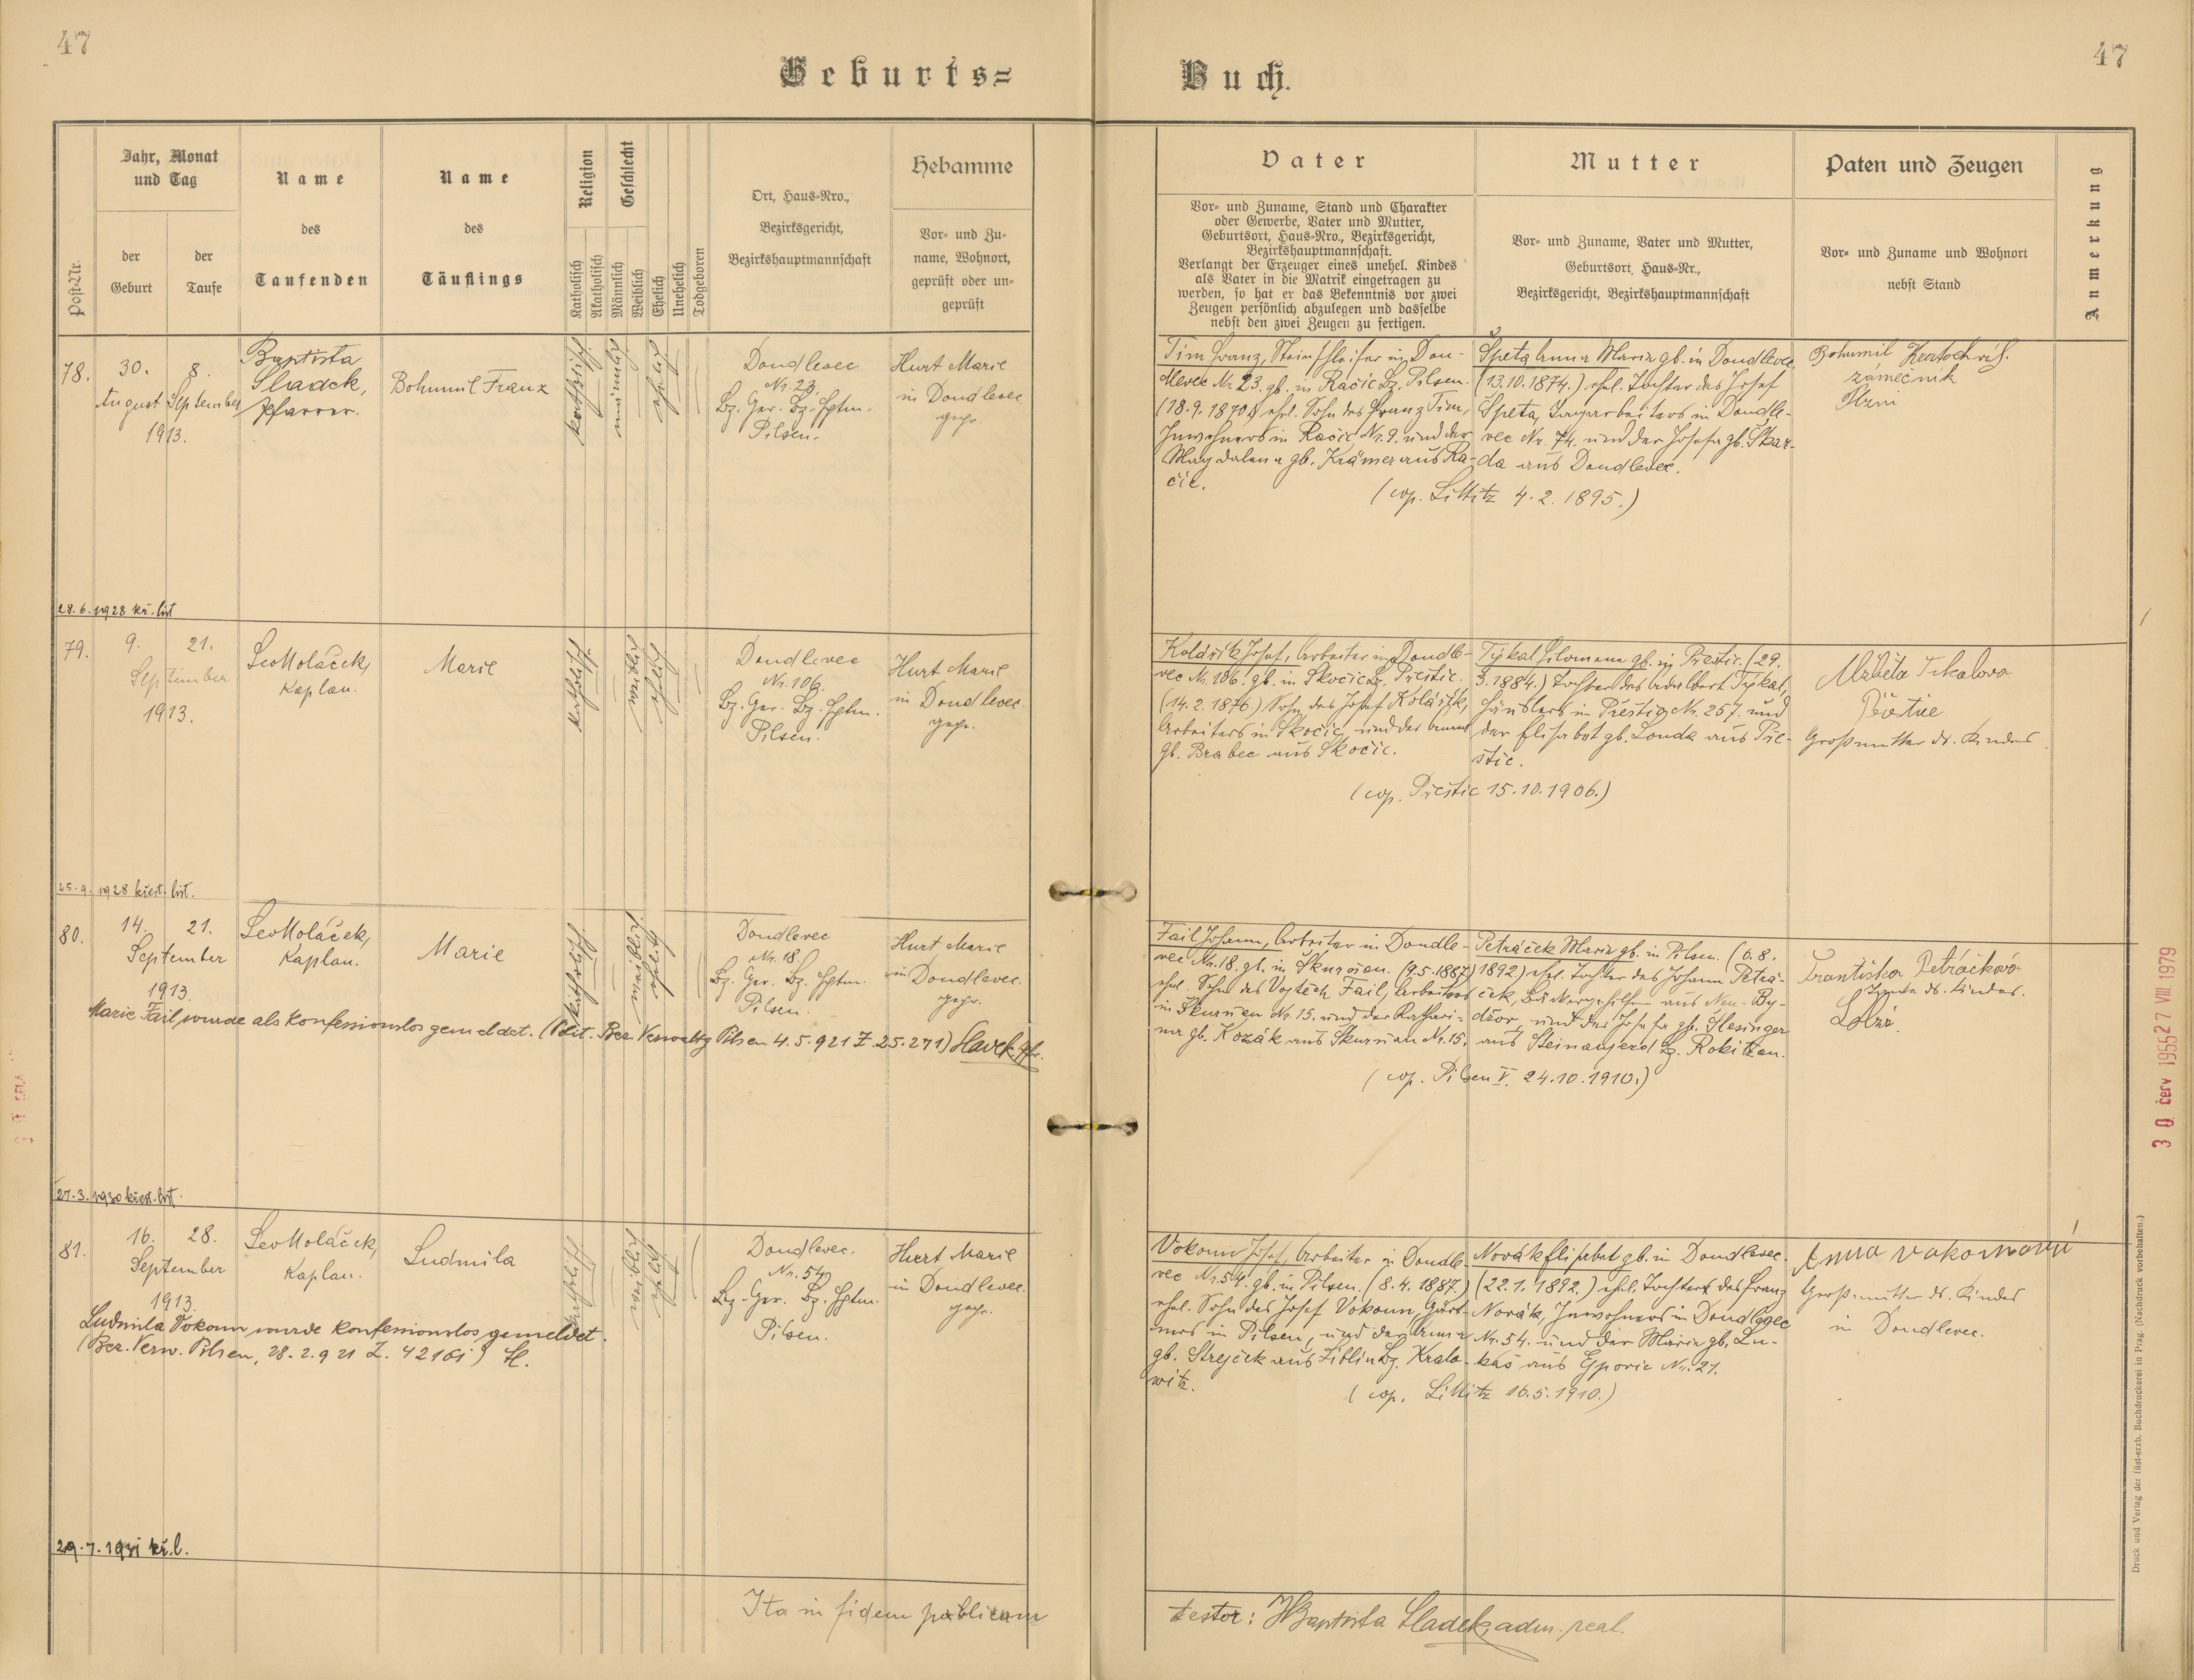 47
47
Geburts=
Buch.
Post-Nr.
Jahr, Monat
und Tag
der
Geburt
der
Taufe
Name
des
Taufenden
Name
des
Täuflings
Religion
Katholisch
Akatholisch
Geschlecht
Männlich
Weiblich
Ehelich
Unehelich
Todgeboren
Ort, Haus-Nro.,
Bezirksgericht,
Bezirkshauptmannschaft
Hebamme
Vor- und Zu-
name, Wohnort,
geprüft oder un-
geprüft
Vater
Vor- und Zuname, Stand und Charakter
oder Gewerbe, Vater und Mutter,
Geburtsort, Haus-Nro., Bezirksgericht,
Bezirkshauptmannschaft.
Verlangt der Erzeuger eines unehel. Kindes
als Vater in die Matrik eingetragen zu
werden, so hat er das Bekenntnis vor zwei
Zeugen persönlich abzulegen und dasselbe
nebst den zwei Zeugen zu fertigen.
Mutter
Vor- und Zuname, Vater und Mutter,
Geburtsort, Haus-Nr.,
Bezirksgericht, Bezirkshauptmannschaft
Paten und Zeugen
Vor- und Zuname und Wohnort
nebst Stand
Anmerkung
78.
30. 8.
August September
1913.
Baptista
Sladek,
Pfarrer.
Bohumil Franz
katholisch
männlich
ehelich
Doudlevec
Nr. 23.
Bz. Ger. Bz. Hptm.
Pilsen.
Hurt Marie
in Doudlevec
gepr.
Tim Franz, Steinschleifer in Dou-
dlevec Nr. 23. gb. in Račic Bz. Pilsen.
(18.9.1870) ehel. Sohn des Franz Tim,
Inwohners in Račic Nr. 9. und der
Magdalena gb. Krämer aus Ra-
čic.
Špeta Anna Maria gb. in Doudlevec
(13.10.1874.) ehel. Tochter des Josef
Špeta, Tagarbeiters in Doudle-
vec Nr. 74. und der Josefa gb. Škar-
da aus Doudlevec.
(cop. Littitz 4.2.1895.)
Bohumil Kratochvíl.
zámečník
Plzni
28.6.1928 kř. list
79.
9. 21.
September
1913.
Leo Holáček,
Kaplan.
Marie
katholisch
weiblich
ehelich
Doudlevec
Nr. 106.
Bz. Ger. Bz. Hptm.
Pilsen.
Hurt Marie
in Doudlevec.
gepr.
Kolářík Josef, Arbeiter in Doudle-
vec Nr. 106. gb. in Skočic Bz. Přeštic.
(14.2.1876.) Sohn des Josef Kolářík,
Arbeiters in Skočic, und der Anna
gb. Brabec aus Skočic.
Týkal Filomena gb. in Přeštic. (29.
3.1884.) Tochter des Adalbert Týkal,
Häuslers in Přeštic Nr. 257. und
der Elisabet gb. Louda aus Pře-
štic.
(cop. Přeštic 15.10.1906.)
Großmutter ds. Kindes.
25.9.1928 křest. list.
80.
14. 21.
September
1913.
Leo Holáček,
Kaplan.
Marie
katholisch
weiblich
ehelich
Doudlevec
Nr. 18.
Bz. Ger. Bz. Hptm.
Pilsen.
Hurt Marie
in Doudlevec.
gepr.
Marie Fail wurde als konfessionslos gemeldet. (Polit. Bez. Verwaltg Pilsen 4.5.921 Z. 25.271)
Fail Johann, Arbeiter in Doudle-
vec Nr. 18. gb. in Skurnian. (9.5.1887)
ehel. Sohn des Vojtěch Fail, Arbeiters
in Skurnian Nr. 15. und der Kathari-
na gb. Kozák aus Skurnian Nr. 15.
Petráček Maria gb. in Pilsen. (6.8.
1892) ehel. Tochter des Johann Petrá-
ček, Bäckergehilfen aus Neu-By-
džov, und der Josefa gb. Slesinger
aus Steinaujezd Bz. Rokitzan.
(cop. Pilsen V. 24.10.1910.)
Františka Petráčková
Tante ds. Kindes.
27.3.1930 křest. list.
81.
16. 28.
September
1913.
Leo Holáček,
Kaplan.
Ludmila
katholisch
weiblich
ehelich
Doudlevec.
Nr. 54.
Bz. Ger. Bz. Hptm.
Pilsen.
Hurt Marie
in Doudlevec.
gepr.
Ludmila Vokoun wurde konfessionslos gemeldet.
(Bez. Verw. Pilsen, 28.2.921 Z. 42161)
Vokoun Josef, Arbeiter in Doudle-
vec Nr. 54. gb. in Pilsen. (8.4.1887.)
ehel. Sohn des Josef Vokoun, Gärt-
ners in Pilsen, und der Anna
gb. Strejček aus Liblin Bz. Kralo-
witz.
Novák Elisabet gb. in Doudlevec.
(22.1.1892.) ehel. Tochter des Franz
Novák, Inwohners in Doudlevec
Nr. 54. und der Maria gb. Lu-
káš aus Ejpovic Nr. 21.
(cop. Littitz 16.5.1910.)
Anna Vokounová
Großmutter ds. Kindes
in Doudlevec.
29.7.1931 kř. l.
Ita in fidem publicam
testor: Baptista Sladek, adm. preal.
30 čer 1955
27 VIII. 1979
Druck und Verlag der fürst-erzb. Buchdruckerei in Prag. (Nachdruck vorbehalten.)